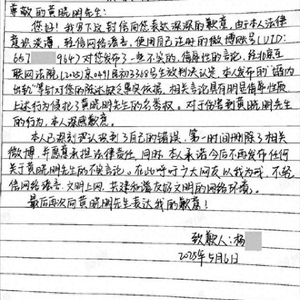 尊敬的黄晓明先生:
您好!我写下这封信向您表达深深的歉意。由于本人法律
意识淡薄,轻信网络谣言,使用自己注册的微博账号(UID:
667 964)对您发布了一些不实的、侮辱性的言论。经北京互
联网法院(2025)京0491民初3368号生效判决认定,本人发布的"婚内
出轨"等针对您的陈述缺乏事实依据,相关言论具有明显侮辱性质
上述行为侵犯了黄晓明先生的名誉权。对于伤害到黄晓明先生
的行为,本人深感歉意。
本人已深刻认识到了自己的错误,第一时间删除了相关
微博,并愿意承担法律责任。同时,本人承诺今后不再发布任何
关于黄晓明先生的不实言论。在此呼吁广大网友以我为戒,不轻
信网络谣言,文明上网,共建和谐友好文明的网络环境。
最后再次向黄晓明先生表达我的歉意!
致歉人:杨
2025年5月6日